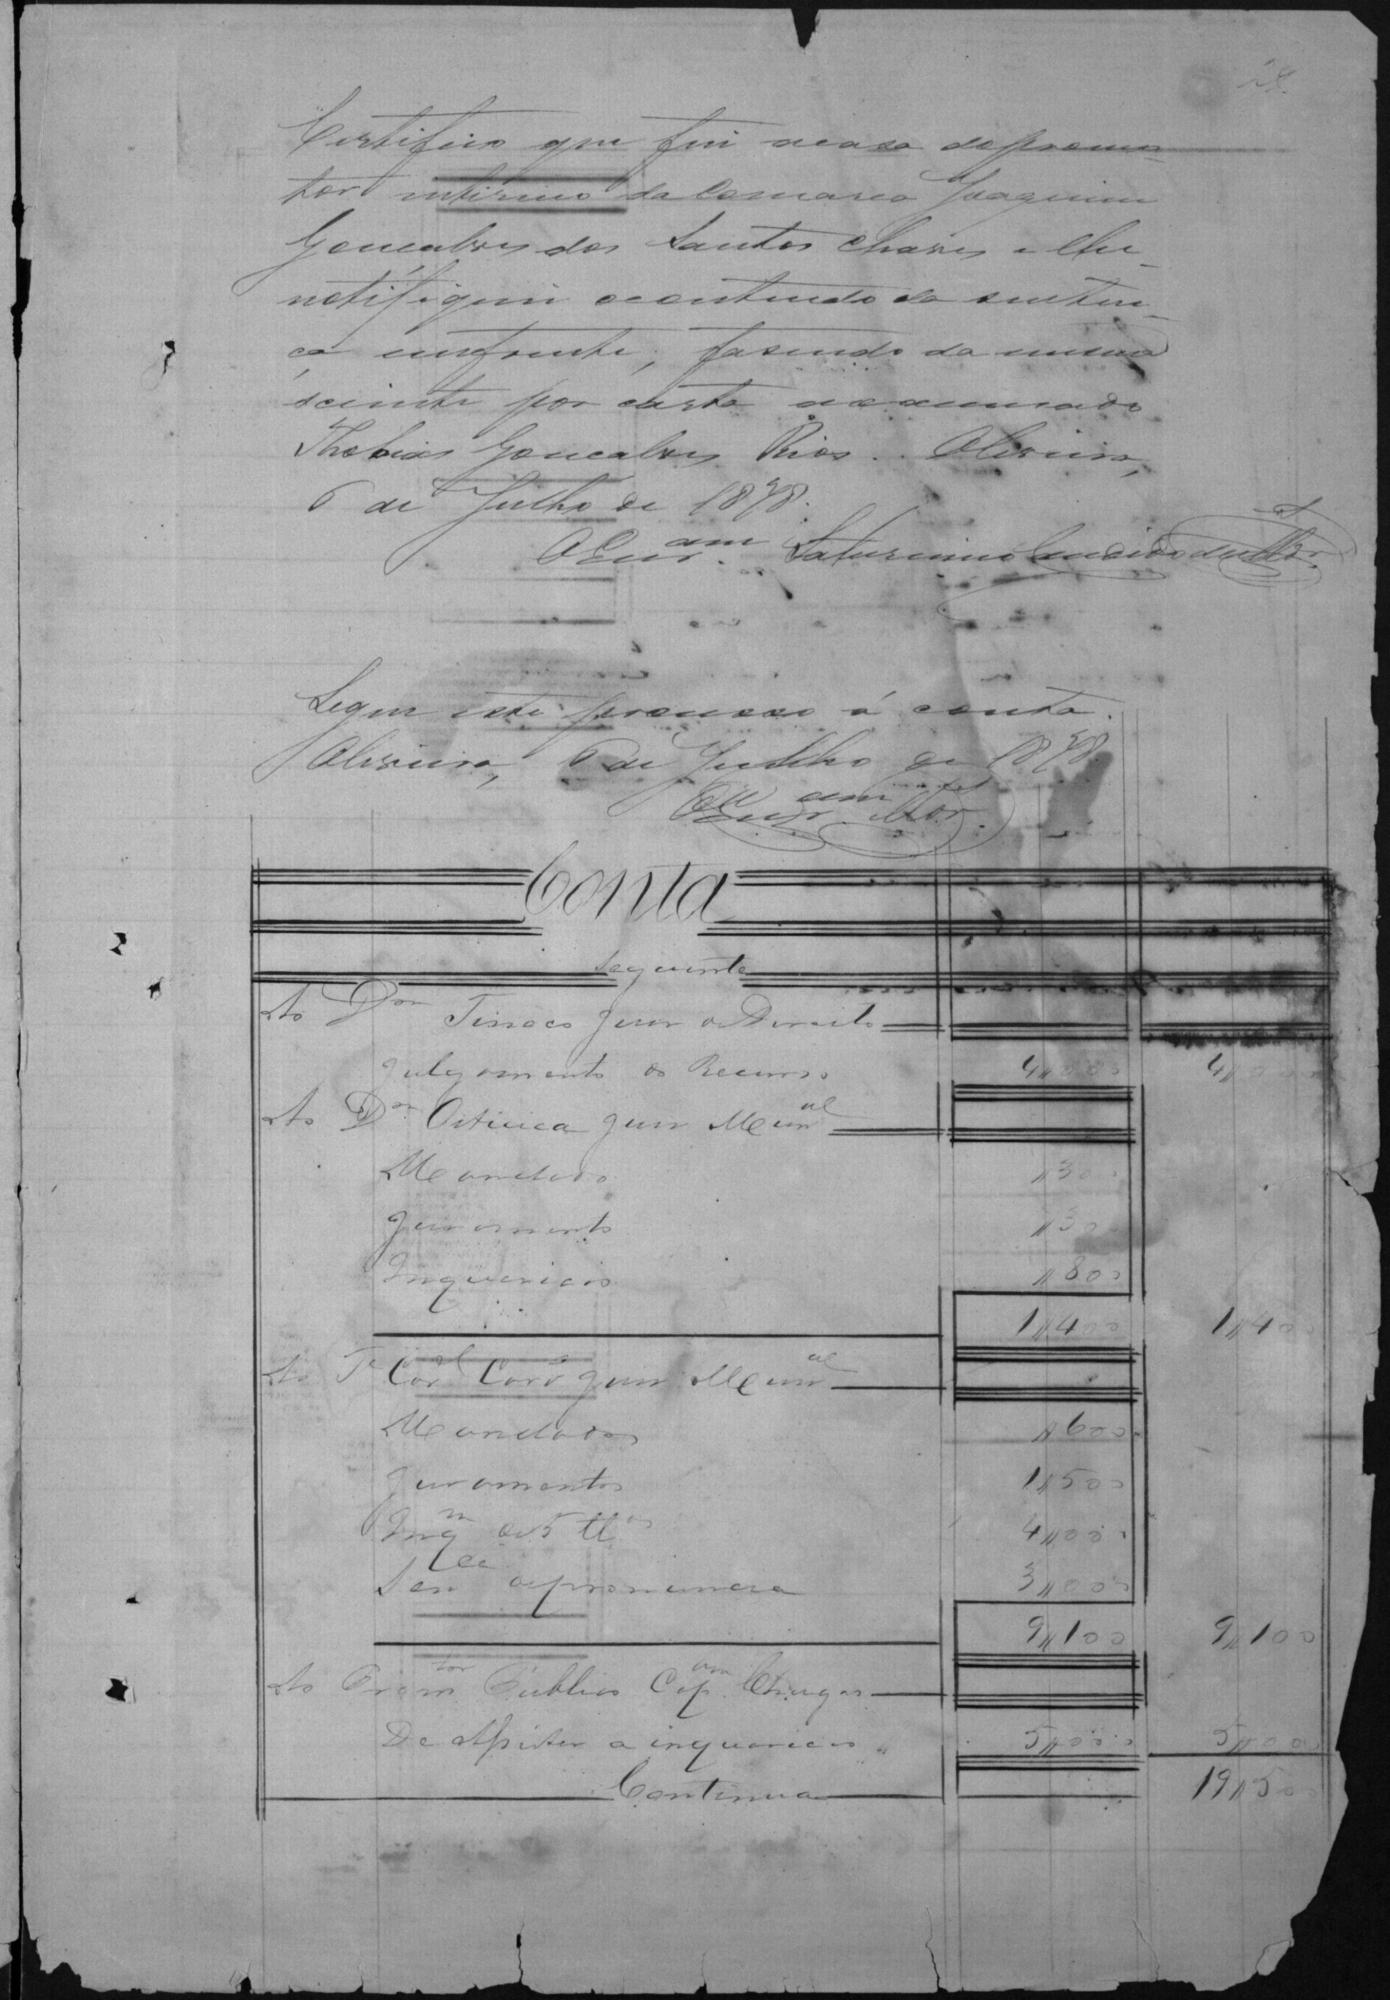 Certifico que fui a casa do promo-
tor interino da Comarca Joaquim
Goncalves dos Santos Chaves e lhe
notifiquei o contiudo da senten-
ça emfrente, fasendo da mesma
sciente por carta ao accusado
Thobias Goncalves Rios. Oliveira,
6 de Julho de 1878.
O Escr.am Saturnino
Segue este processo á conta.
Oliveira, 6 de Julho de 1878
O Escr.am
Conta
Seguinte
Ao Dor Tinoco Juiz de Direito
Julgamento do Recurso 4,,000 4,,000
Ao Dor Juiz Mun.al
Mandado ,,300
Juramento ,,300
Inquericão ,,800
1,,400 1,,400
Ao Te Cor.el Juiz Mun.al
Mandados ,,600
Juramentos 1,,500
Inq.m de 5 tt.as 4,,000
Sen.ça de pronuncia 3,,000
9,,100 9,,100
Ao Prom.tor Publico Cap.am Chagas
De assistir a inquericão 5,,000 5,,000
Continua 19,,500